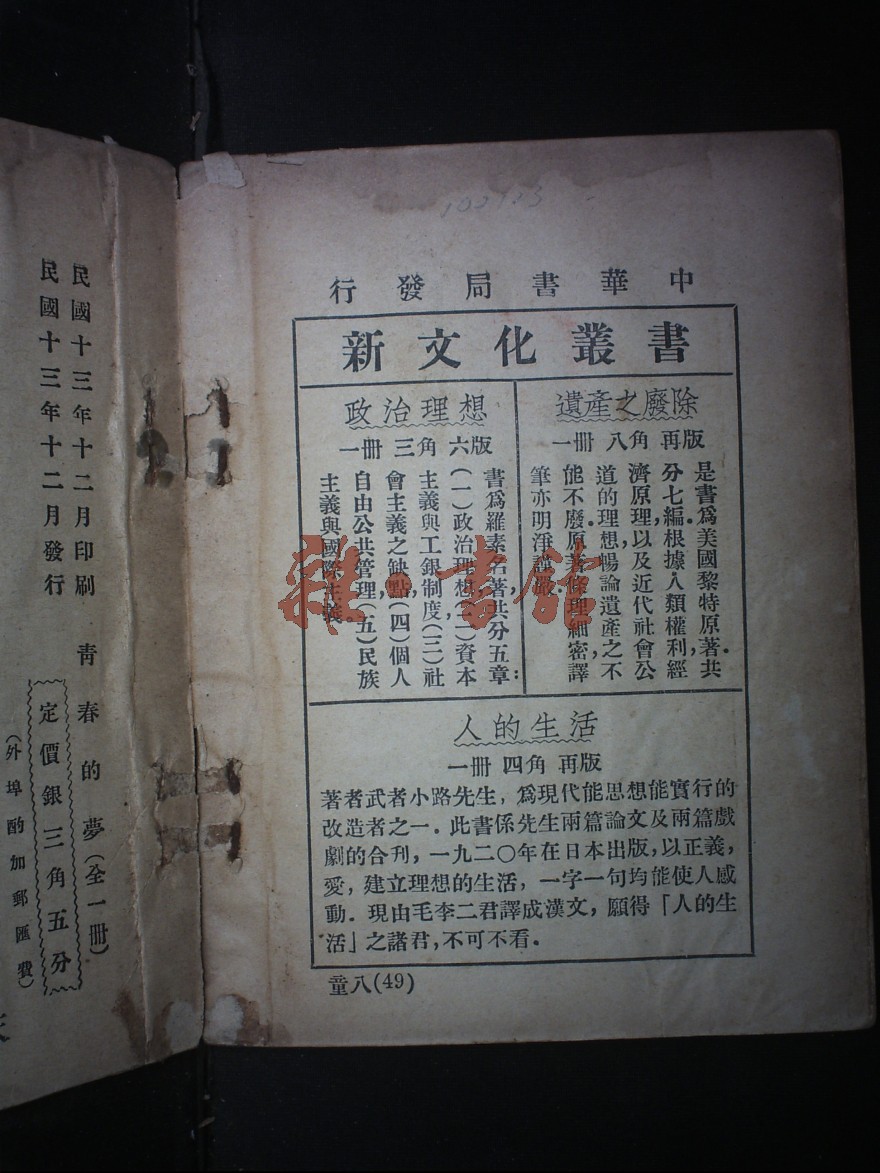 102123
中華書局發行
新文化叢書
遺產之廢除
一冊 八角 再版
是書爲美國黎特原著.共
分七編.根據人類權利,經
濟原理,以及近代社會公
道的理想暢論遺產之不
能不廢.原著條理細密,譯
筆亦明淨謹嚴.
政治理想
一冊 三角 六版
書爲羅素名著,共分五章:
(一)政治理想,(二)資本
主義與工銀制度(三)社
會主義之缺點,(四)個人
自由公共管理,(五)民族
主義與國際主義.
人的生活
一冊 四角 再版
著者武者小路先生,爲現代能思想能實行的
改造者之一.此書係先生兩篇論文及兩篇戲
劇的合刊,一九二〇年在日本出版,以正義,
愛,建立理想的生活,一字一句均能使人感
動.現由毛李二君譯成漢文,願得「人的生
活」之諸君,不可不看.
童八(49)
民國十三年十二月印刷
民國十三年十二月發行
青春的夢(全一冊)
定價銀三角五分
(外埠酌加郵匯費)
雜·書館